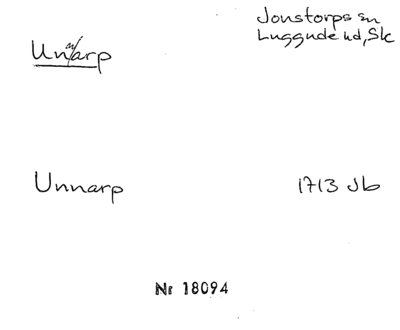 Jonstorps sn
Luggude hd, Sk
Unnarp
Unnarp
1713 Jb
Nr 18094